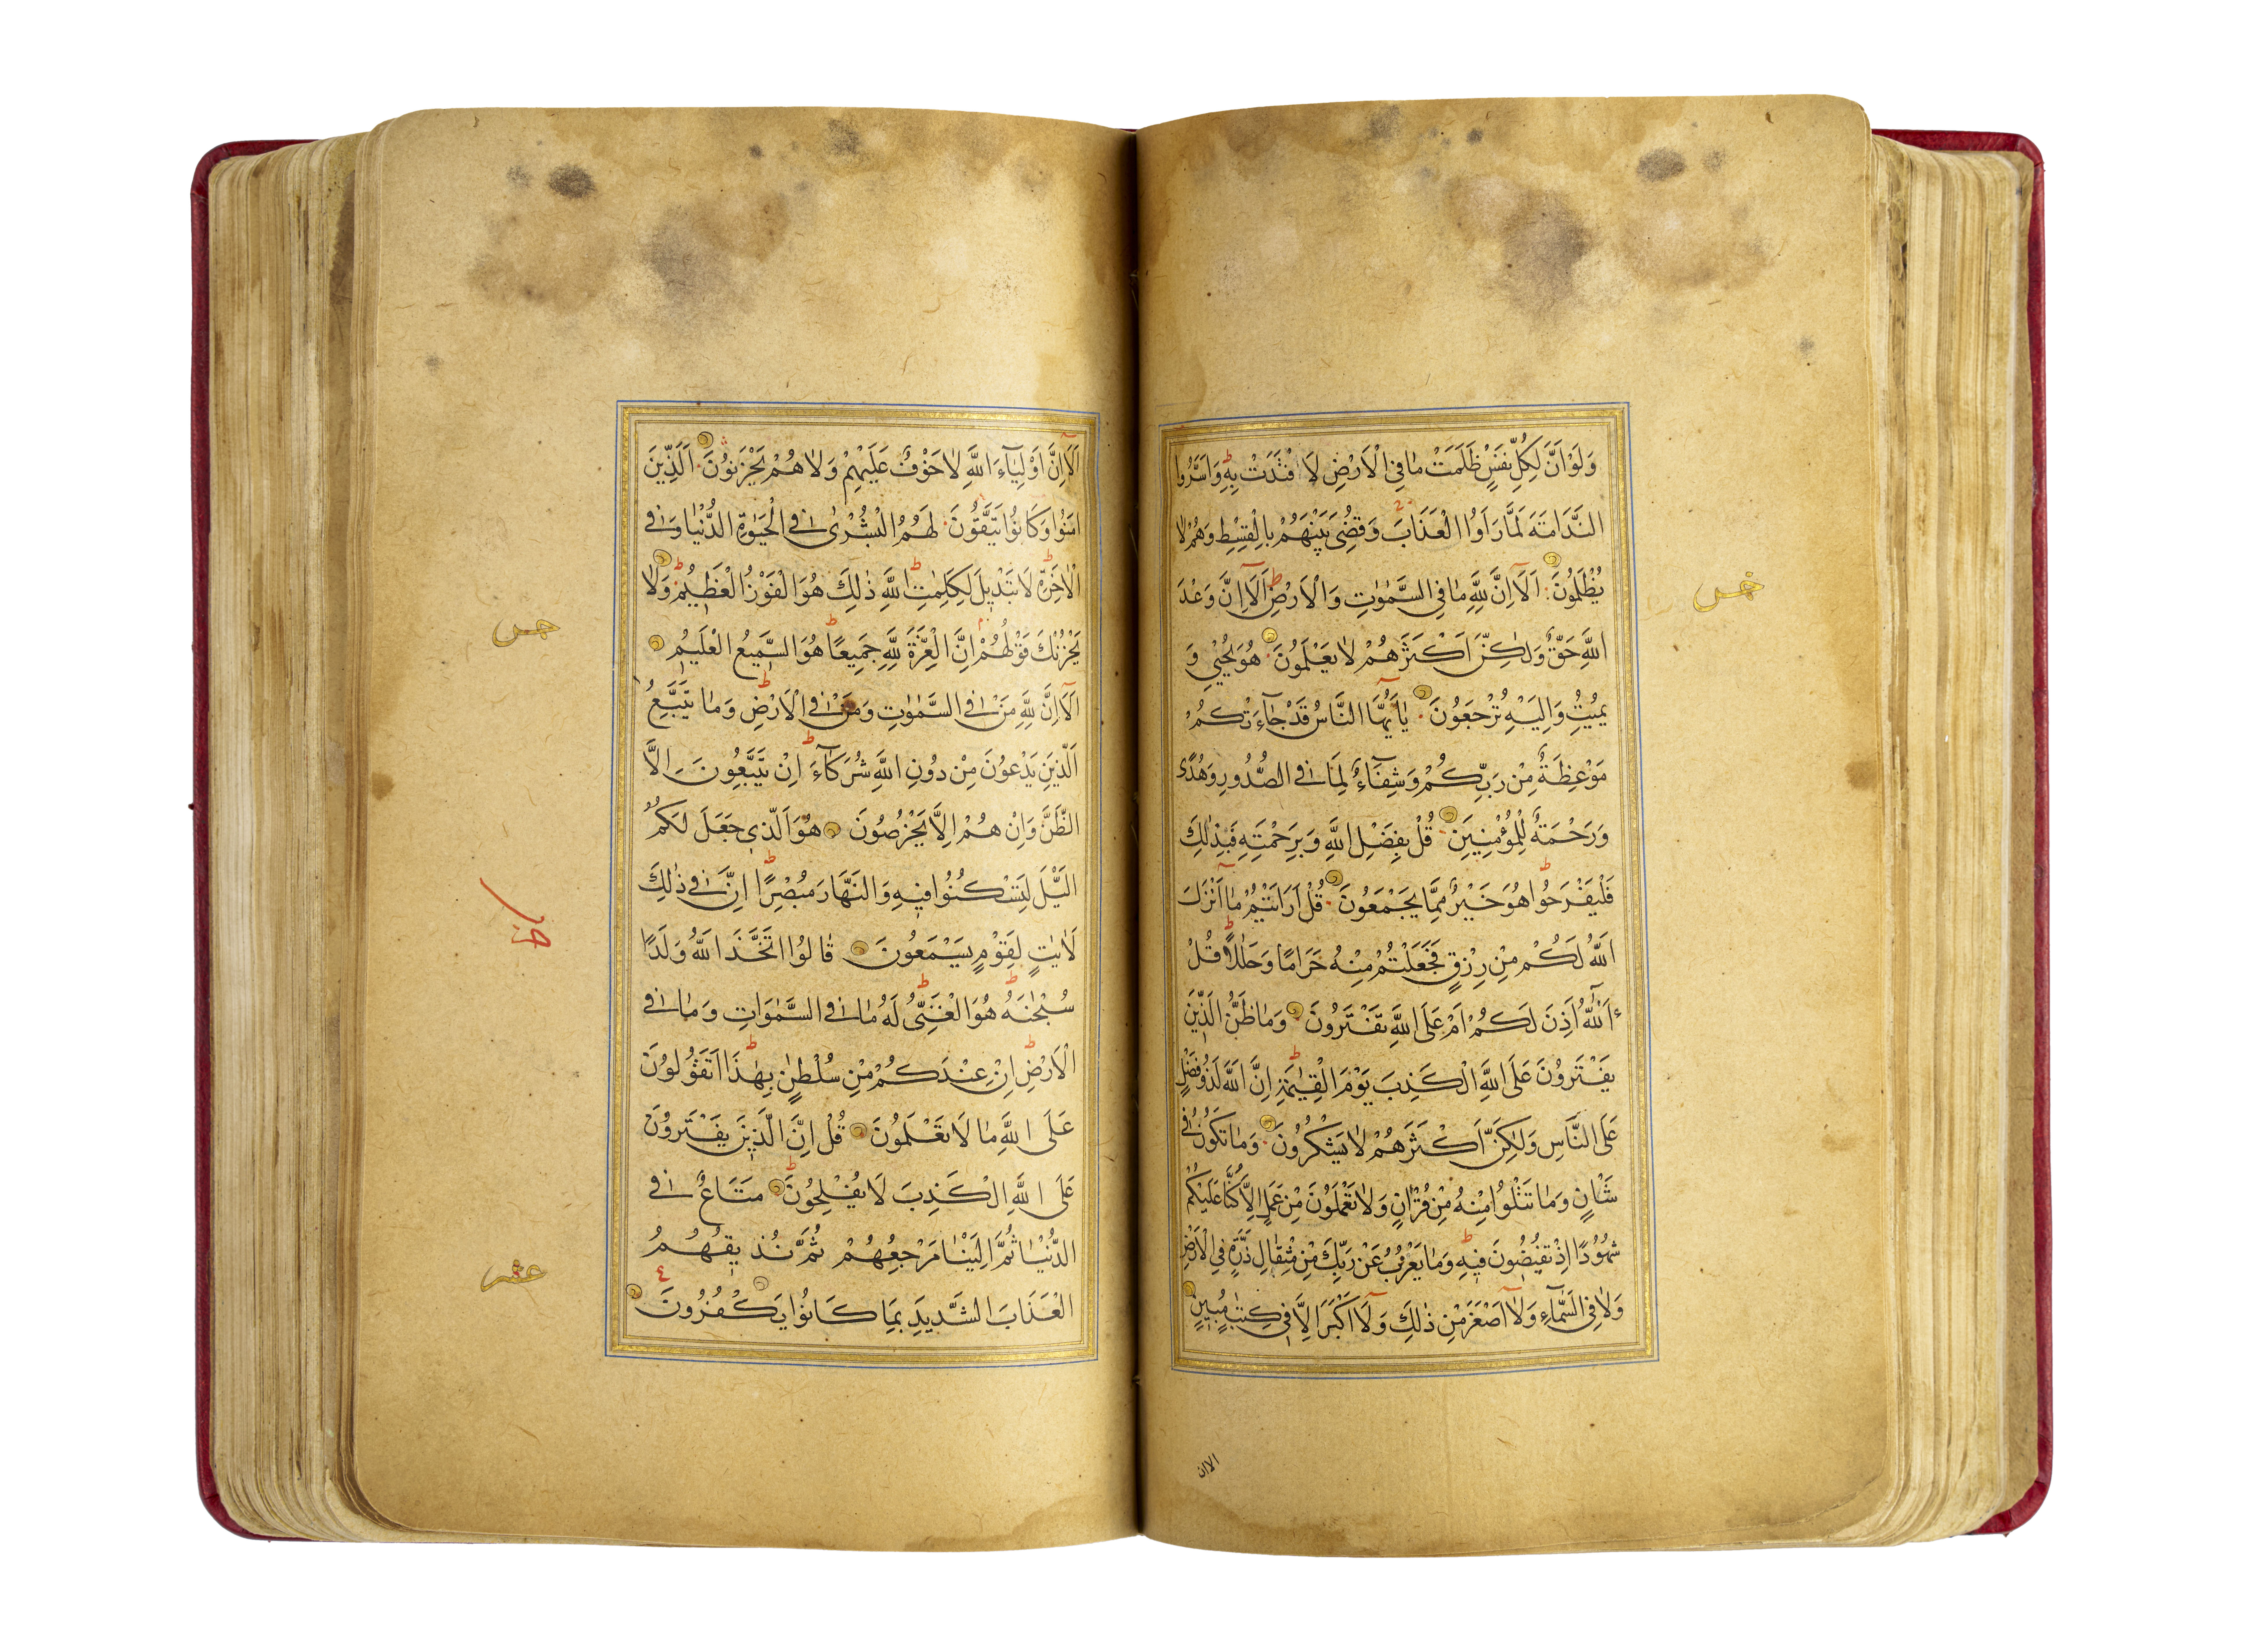 وَلَوْ اَنَّ لِكُلِّ نَفْسٍ ظَلَمَتْ مَا فِي الْاَرْضِ لَا فْتَدَتْ بِهٖ وَاَسَرُّوا
النَّدَامَةَ لَمَّا رَاَوُا الْعَذَابَ وَقُضِيَ بَيْنَهُمْ بِالْقِسْطِ وَهُمْ لَا
يُظْلَمُونَ اَلَآ اِنَّ لِلّٰهِ مَا فِي السَّمٰوٰتِ وَالْاَرْضِ اَلَآ اِنَّ وَعْدَ
اللّٰهِ حَقٌّ وَلٰكِنَّ اَكْثَرَهُمْ لَا يَعْلَمُونَ هُوَ يُحْيٖ وَ
يُمِيتُ وَاِلَيْهِ تُرْجَعُونَ يَآ اَيُّهَا النَّاسُ قَدْ جَآءَتْكُمْ
مَوْعِظَةٌ مِنْ رَبِّكُمْ وَشِفَآءٌ لِمَا فِي الصُّدُورِ وَهُدًى
وَرَحْمَةٌ لِلْمُؤْمِنِينَ قُلْ بِفَضْلِ اللّٰهِ وَبِرَحْمَتِهٖ فَبِذٰلِكَ
فَلْيَفْرَحُوا هُوَ خَيْرٌ مِمَّا يَجْمَعُونَ قُلْ اَرَاَيْتُمْ مَآ اَنْزَلَ
اللّٰهُ لَكُمْ مِنْ رِزْقٍ فَجَعَلْتُمْ مِنْهُ حَرَامًا وَحَلَالًا قُلْ
ءٰٓاللّٰهُ اَذِنَ لَكُمْ اَمْ عَلَى اللّٰهِ تَفْتَرُونَ وَمَا ظَنُّ الَّذِينَ
يَفْتَرُونَ عَلَى اللّٰهِ الْكَذِبَ يَوْمَ الْقِيٰمَةِ اِنَّ اللّٰهَ لَذُو فَضْلٍ
عَلَى النَّاسِ وَلٰكِنَّ اَكْثَرَهُمْ لَا يَشْكُرُونَ وَمَا تَكُونُ فِي
شَاْنٍ وَمَا تَتْلُوا مِنْهُ مِنْ قُرْاٰنٍ وَلَا تَعْمَلُونَ مِنْ عَمَلٍ اِلَّا كُنَّا عَلَيْكُمْ
شُهُودًا اِذْ تُفِيضُونَ فِيهِ وَمَا يَعْزُبُ عَنْ رَبِّكَ مِنْ مِثْقَالِ ذَرَّةٍ فِي الْاَرْضِ
وَلَا فِي السَّمَآءِ وَلَآ اَصْغَرَ مِنْ ذٰلِكَ وَلَآ اَكْبَرَ اِلَّا فِي كِتٰبٍ مُبِينٍ
الا ان
اَلَآ اِنَّ اَوْلِيَآءَ اللّٰهِ لَا خَوْفٌ عَلَيْهِمْ وَلَا هُمْ يَحْزَنُونَ اَلَّذِينَ
اٰمَنُوا وَكَانُوا يَتَّقُونَ لَهُمُ الْبُشْرٰى فِي الْحَيٰوةِ الدُّنْيَا وَفِي
الْاٰخِرَةِ لَا تَبْدِيلَ لِكَلِمٰتِ اللّٰهِ ذٰلِكَ هُوَ الْفَوْزُ الْعَظِيمُ وَلَا
يَحْزُنْكَ قَوْلُهُمْ اِنَّ الْعِزَّةَ لِلّٰهِ جَمِيعًا هُوَ السَّمِيعُ الْعَلِيمُ
اَلَآ اِنَّ لِلّٰهِ مَنْ فِي السَّمٰوٰتِ وَمَنْ فِي الْاَرْضِ وَمَا يَتَّبِعُ
الَّذِينَ يَدْعُونَ مِنْ دُونِ اللّٰهِ شُرَكَآءَ اِنْ يَتَّبِعُونَ اِلَّا
الظَّنَّ وَاِنْ هُمْ اِلَّا يَخْرُصُونَ هُوَ الَّذِي جَعَلَ لَكُمُ
الَّيْلَ لِتَسْكُنُوا فِيهِ وَالنَّهَارَ مُبْصِرًا اِنَّ فِي ذٰلِكَ
لَاٰيٰتٍ لِقَوْمٍ يَسْمَعُونَ قَالُوا اتَّخَذَ اللّٰهُ وَلَدًا
سُبْحٰنَهُ هُوَ الْغَنِيُّ لَهُ مَا فِي السَّمٰوَاتِ وَمَا فِي
الْاَرْضِ اِنْ عِنْدَكُمْ مِنْ سُلْطٰنٍ بِهٰذَا اَتَقُولُونَ
عَلَى اللّٰهِ مَا لَا تَعْلَمُونَ قُلْ اِنَّ الَّذِينَ يَفْتَرُونَ
عَلَى اللّٰهِ الْكَذِبَ لَا يُفْلِحُونَ مَتَاعٌ فِي
الدُّنْيَا ثُمَّ اِلَيْنَا مَرْجِعُهُمْ ثُمَّ نُذِيقُهُمُ
الْعَذَابَ الشَّدِيدَ بِمَا كَانُوا يَكْفُرُونَ
عشر